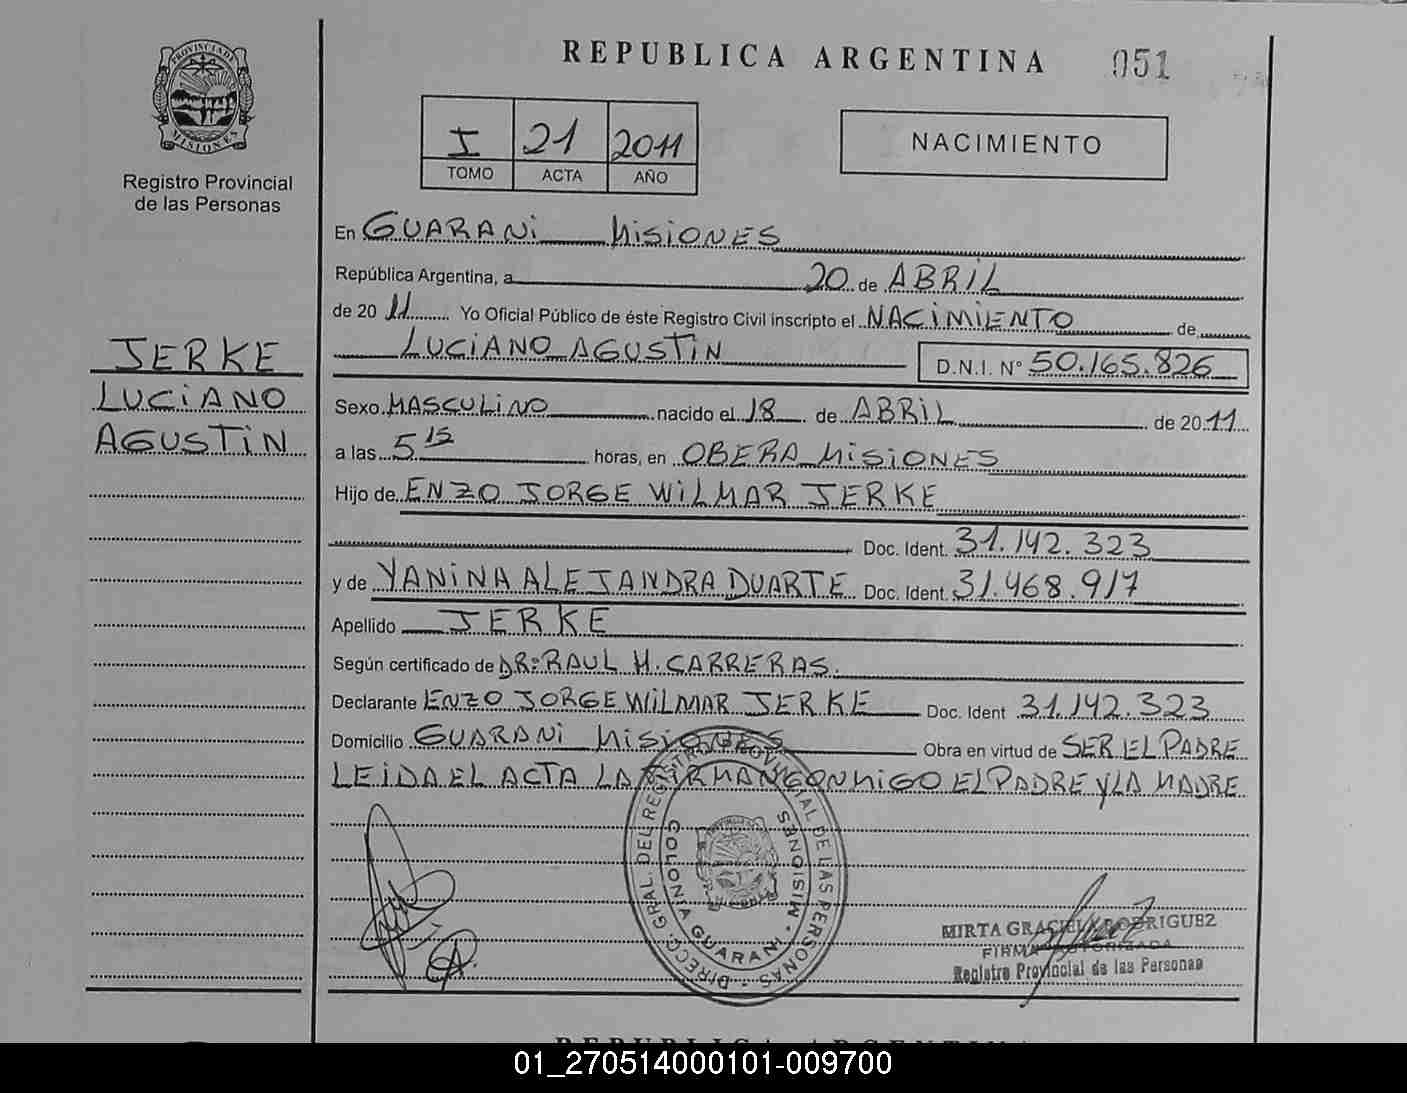 PROVINCIA DE
MISIONES
Registro Provincial
de las Personas
JERKE
LUCIANO
AGUSTIN
REPUBLICA ARGENTINA 051
I 21 2011
TOMO ACTA AÑO
NACIMIENTO
En GUARANI MISIONES
República Argentina, a 20 de ABRIL
de 20 11 Yo Oficial Público de éste Registro Civil inscripto el NACIMIENTO de
LUCIANO AGUSTIN D.N.I. N° 50.165.826
Sexo MASCULINO nacido el 18 de ABRIL de 20 11
a las 5 15 horas, en OBERA MISIONES
Hijo de ENZO JORGE WILMAR JERKE
Doc. Ident. 31.142.323
y de YANINA ALEJANDRA DUARTE Doc. Ident. 31.468.917
Apellido JERKE
Según certificado de DR: RAUL H. CARRERAS.
Declarante ENZO JORGE WILMAR JERKE Doc. Ident 31.142.323
Domicilio GUARANI MISIONES Obra en virtud de SER EL PADRE
LEIDA EL ACTA LA FIRMAN CONMIGO EL PADRE Y LA MADRE
DIRECC. GRAL. DEL REGISTRO PROVINCIAL DE LAS PERSONAS
COLONIA GUARANI - MISIONES
MIRTA GRACIELA RODRIGUEZ
FIRMA AUTORIZADA
Registro Provincial de las Personas
REPUBLICA ARGENTINA
01_270514000101-009700